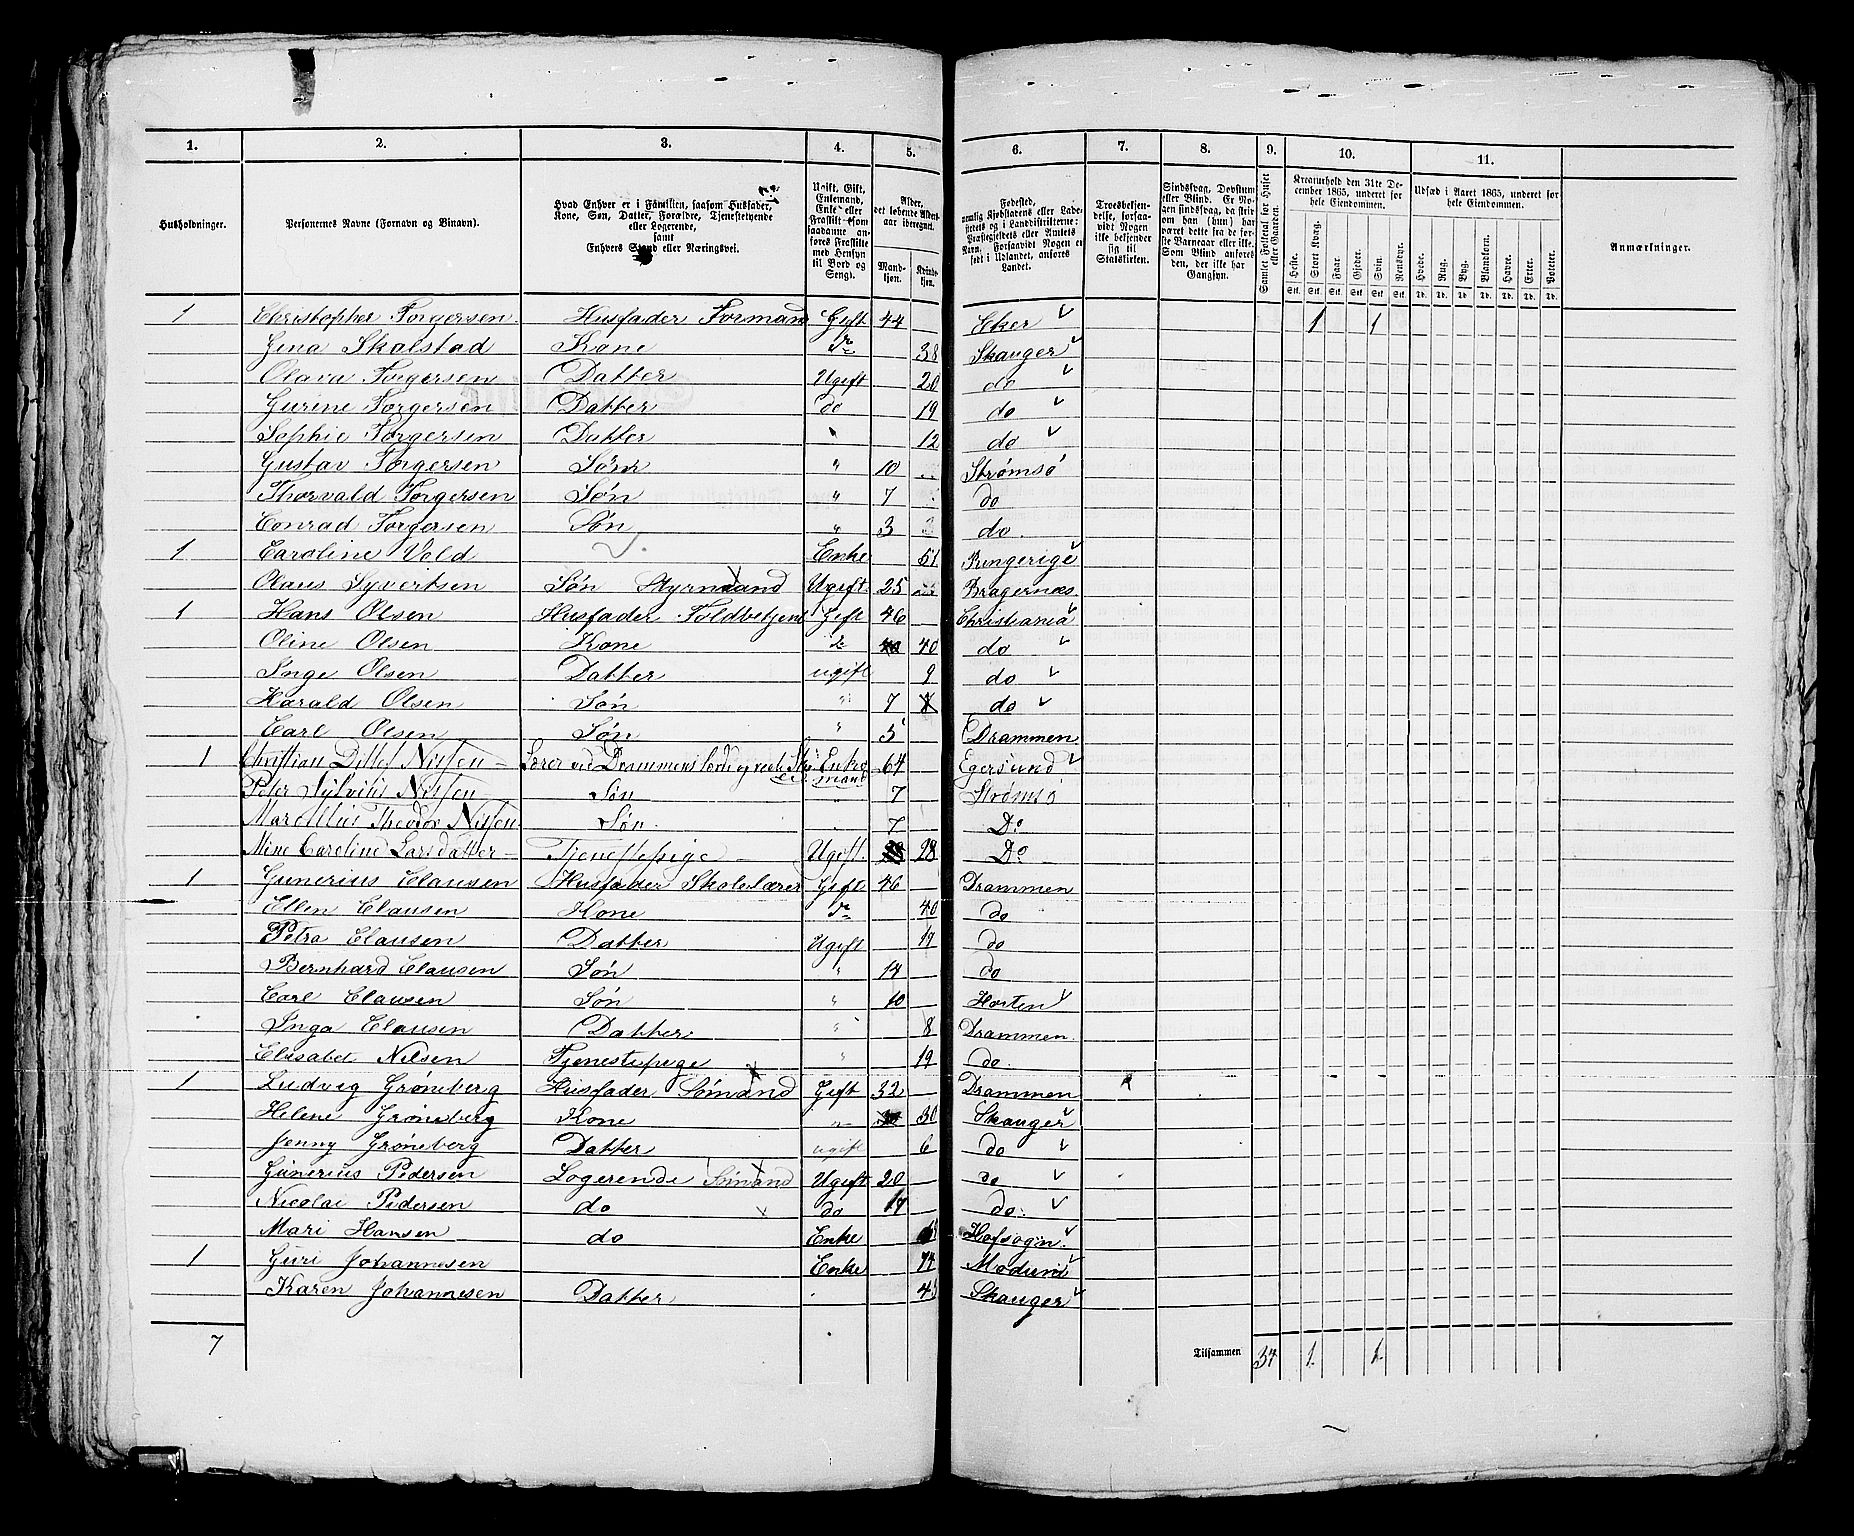 1. 2. 3. 4. 5. 6. 7. 8. 9. 10. 11.
Husholdninger. Personernes Navne (Fornavn og Binavn).
Hvad Enhver er i Familien, saasom Husfader, Kone, Søn, Datter, Forældre, Tjenestetyende eller Logerende, samt Enhvers Stand eller Næringsvei.
Ugift, Gift, Enkemand, Enke eller Fraskilt
Alder, det løbende Aldersaar iberegnet. Mandkjøn. Kvindekjøn.
Fødested,
Troesbekjendelse, forsaavidt Nogen ikke bekjender sig til Statskirken.
Gamlet Folketal for Huset eller Gaarden.
Kreaturhold den 31te December 1865, underet for hele Eiendommen.
Heste. Stort Kvæg. Faar. Gjeder. Svin. Rensdyr.
Udsæd i Aaret 1865, underet for hele Eiendommen.
Hvede. Rug. Byg. Blandkorn. Havre. Erter. Poteter.
Anmærkninger.
1 Christopher Torgersen Husfader Formand Gift 44 Eker 1 1
Gina Skolstad Kone do 38 Skauger
Olava Torgersen Datter Ugift 20 do
Gurine Torgersen Datter do 19 do
Sophie Torgersen Datter 12 do
Gustav Torgersen Søn " 10 Strømsø
Thorvald Torgersen Søn " 7 do
Conrad Torgersen Søn " 3 do
1 Caroline Vold Enke 51 Ringerige
Olaus Syvertsen Søn Styrmand Ugift 25 Bragernæs
1 Hans Olsen Husfader Toldbetjent Gift 46 Christiania
Oline Olsen Kone 40 do
Inge Olsen Datter ugift 9 do
Harald Olsen Søn " 7 do
Carl Olsen Søn " 5 Drammen
1 Christian Ditlef Nissen Lærer ved Drammens Enkemand 64 Egersund
Peter Sylvius Nissen Søn 7 Strømsø
Marcellius Theodor Nissen Søn 7 Do
Mine Caroline Larsdatter Tjenestepige Ugift 28 Do
1 Gunerius Clausen Husfader Skolelærer Gift 46 Drammen
Ellen Clausen Kone do 40 do
Petra Clausen Datter Ugift 17 do
Bernhard Clausen Søn " 14 do
Carl Clausen Søn " 10 Horten
Inga Clausen Datter " 8 Drammen
Elisabet Nilsen Tjenestepige " 19 do
1 Ludvig Grøneberg Husfader Sømand Gift 32 Drammen
Helene Grøneberg Kone 30 Skauger
Jenny Grøneberg Datter ugift 6 do
Gunerius Pedersen Logerende Sømand Ugift 20 do
Nicolai Pedersen do do 17 do
Mari Hansen do Enke Hofsogn
1 Guri Johannesen Enke 74 Modum
Karen Johannesen Datter Skauger
7 Tilsammen 34 1 1